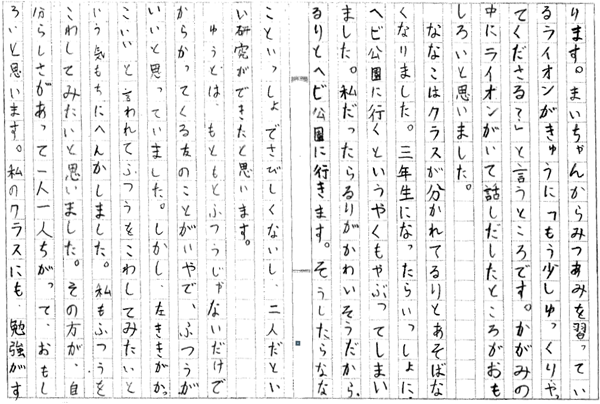 ります。まいちゃんからみつあみを習ってい
るライオンがきゅうに「もう少しゅっくりや
てくださる？」と言うところです。かがみの
中にライオンがいて話しだしたところがおも
しろいと思いました。
ななこはクラスが分かれてるりとあそばな
くなりました。三年生になったらいっしょに、
ヘビ公園に行くというやくもやぶってしまい
ました。私だったらるりがかわいそうだから、
るりとヘビ公園に行きます。そうしたらなな
こといっしょでさびしくないし、二人だといい
い研究ができたと思います。
ゅうとは、もともとふつうじゃないだけで
からかってくる友のことがいやで、ふつうが
いいと思っていました。しかし、左ききがか、
こいいと言われてふつうをこわしてみたいと
いう気もちにへんかしました。私もふつうを
こわしてみたいと思いました。その方が、自
分らしさがあって一人一人ちがって、おもし
ろいと思います。私のクラスにも、勉強がす